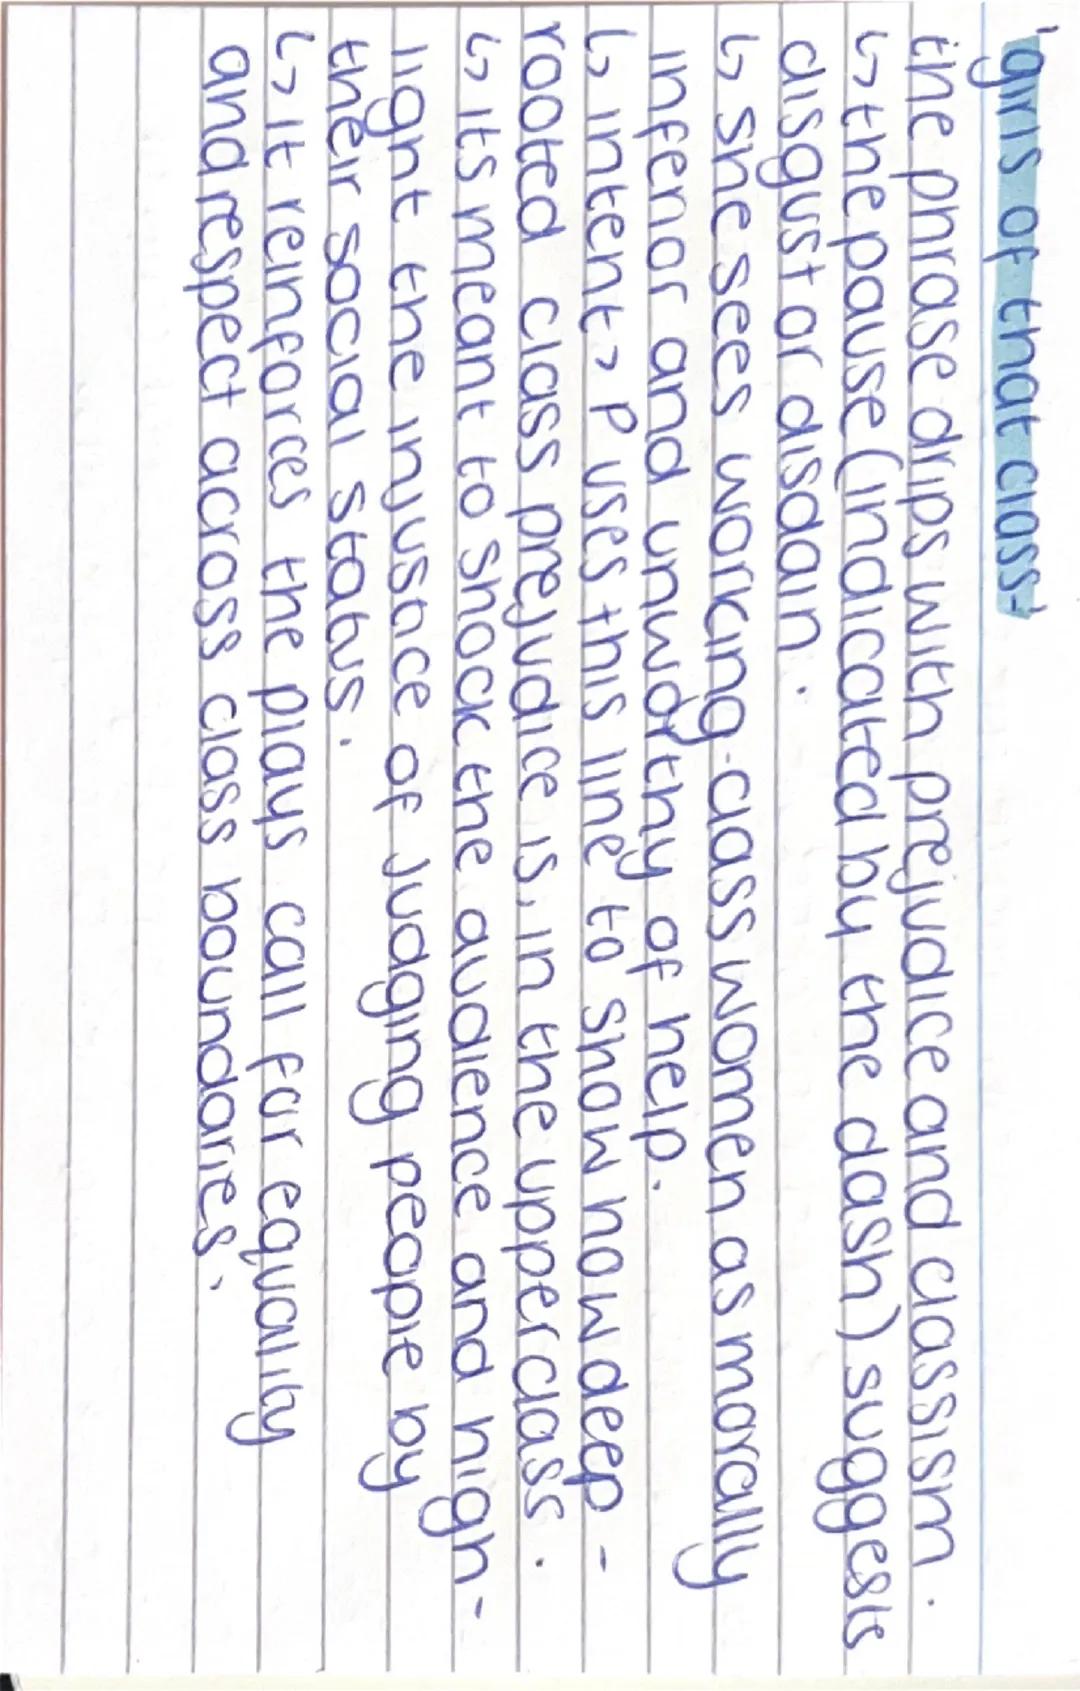 'girls of that class-'
the phrase drips with prejudice and classism.
↳ the pause (indicated by the dash) suggests
disgust or disdain.
↳ she sees working-class women as morally
inferior and unworthy of help.
↳ intent > P uses this line to show how deep -
rooted class prejudice is, in the upper class.
↳ its meant to shock the audience and high-
light the injustice of judging people by
their social status.
↳ it reinforces the plays call for equality
and respect across class boundaries.